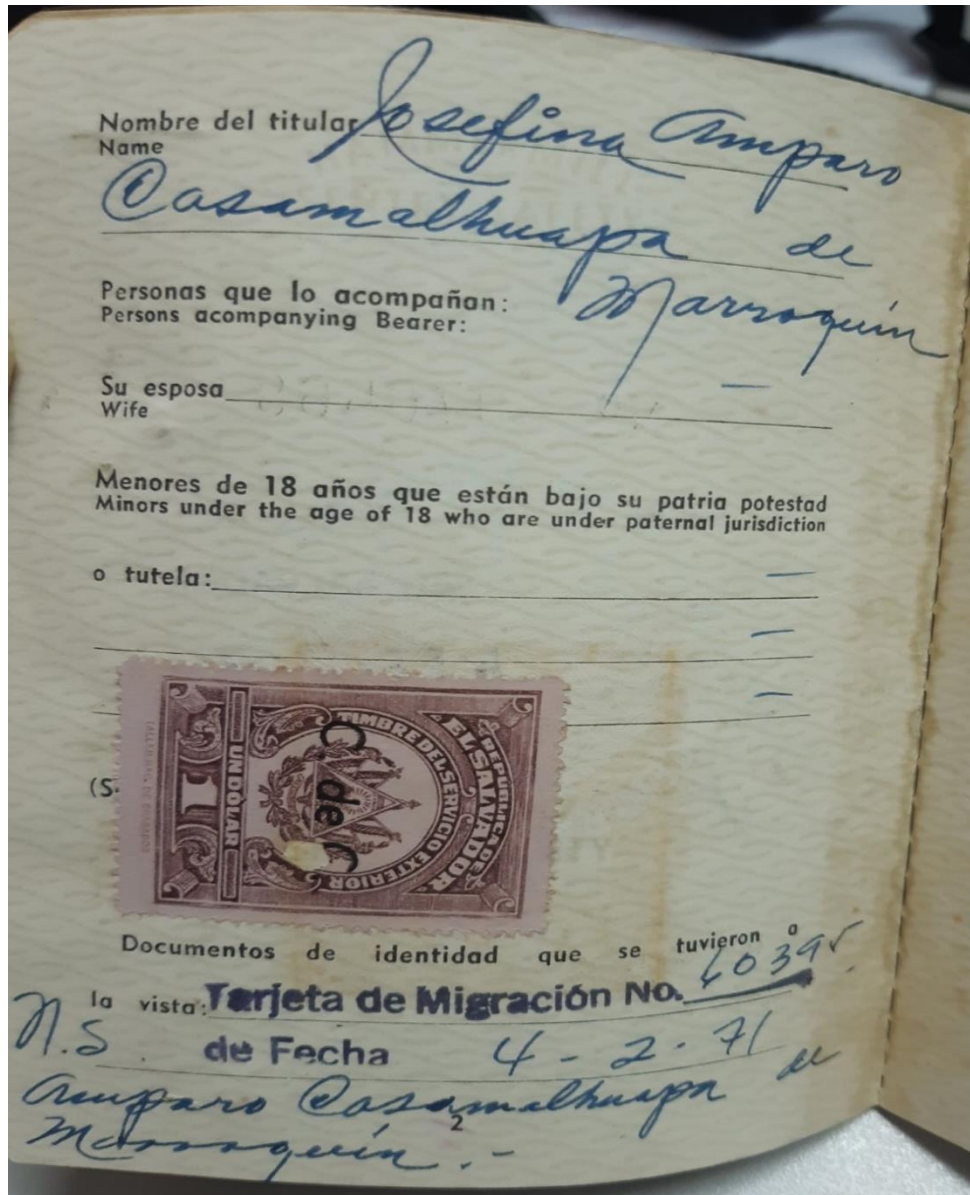 Nombre del titular Josefina Amparo
Name
Casamalhuapa de
Marroquín
Personas que lo acompañan:
Persons acompanying Bearer:
Su esposa —
Wife
Menores de 18 años que están bajo su patria potestad
Minors under the age of 18 who are under paternal jurisdiction
o tutela: —
—
—
(S.
REPUBLICA DE
EL SALVADOR
TIMBRE DEL SERVICIO EXTERIOR
C de C
UN DÓLAR
1
Documentos de identidad que se tuvieron a
la vista: Tarjeta de Migración No. 60395
N.S. de Fecha 4 - 2 - 71
Amparo Casamalhuapa de
Marroquín.-
2